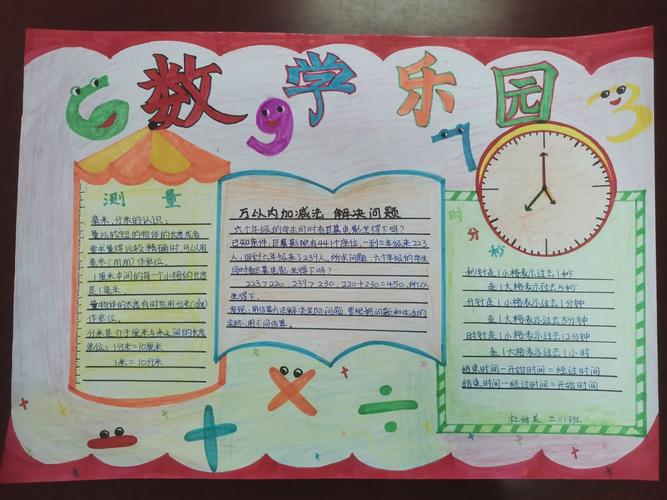 数学乐园
6
9
7
3
测量
毫米、分米的认识:
量比较短的物体的长度或者
要求量得比较精确时,可以用
毫米(mm)作单位。
1厘米中间的每一个小格的长度
是1毫米。
量物体的长度有时也用分米(dm)
作单位。
分米是介于厘米与米之间的长度
单位:1分米=10厘米
1米=10分米
万以内加减法 解决问题
六个年级的学生同时看巨幕电影坐得下吗?
已知条件:巨幕影院有441个座位,一到三年级来223
人,四到六年级来了239人,所求问题:六个年级的学生
同时看巨幕电影坐得下吗?
223>220,239>230,220+230=450,所以
坐得下。
发现:用估算方法解决实际问题,要根据问题和生活的
实际,用不同估算。
时 分 秒
秒针走1小格表示过去1秒
走1大格表示过去5秒
分针走1小格表示过去1分钟
走1大格表示过去5分钟
时针走1小格表示过去12分钟
走1大格表示过去1小时
结束时间-开始时间=经过时间
结束时间-经过时间=开始时间
三(1)班